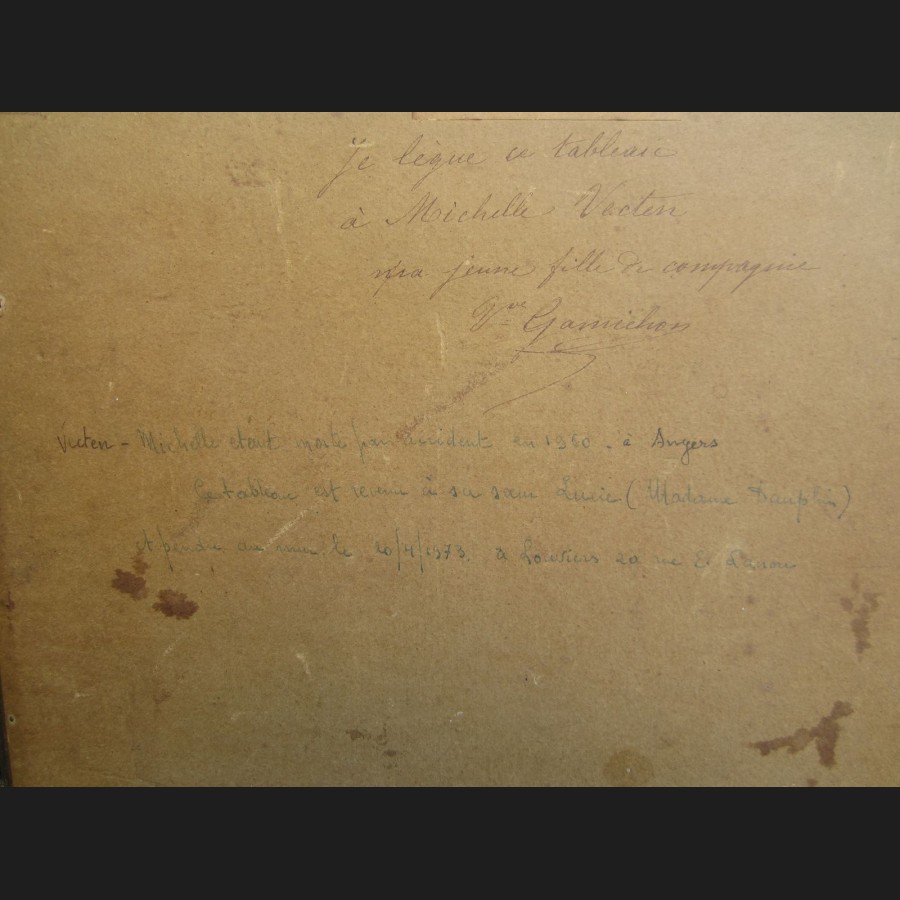 Je lègue ce tableau
à Michelle Vecten
ma jeune fille de compagnie
Vve Gamichon
Vecten - Michelle étant morte par accident en 1960. à Angers
Ce tableau est revenu à sa sœur Lucie (Madame Dauphin)
et pendu au mur le 20/4/1973. à Louviers 20 rue E.